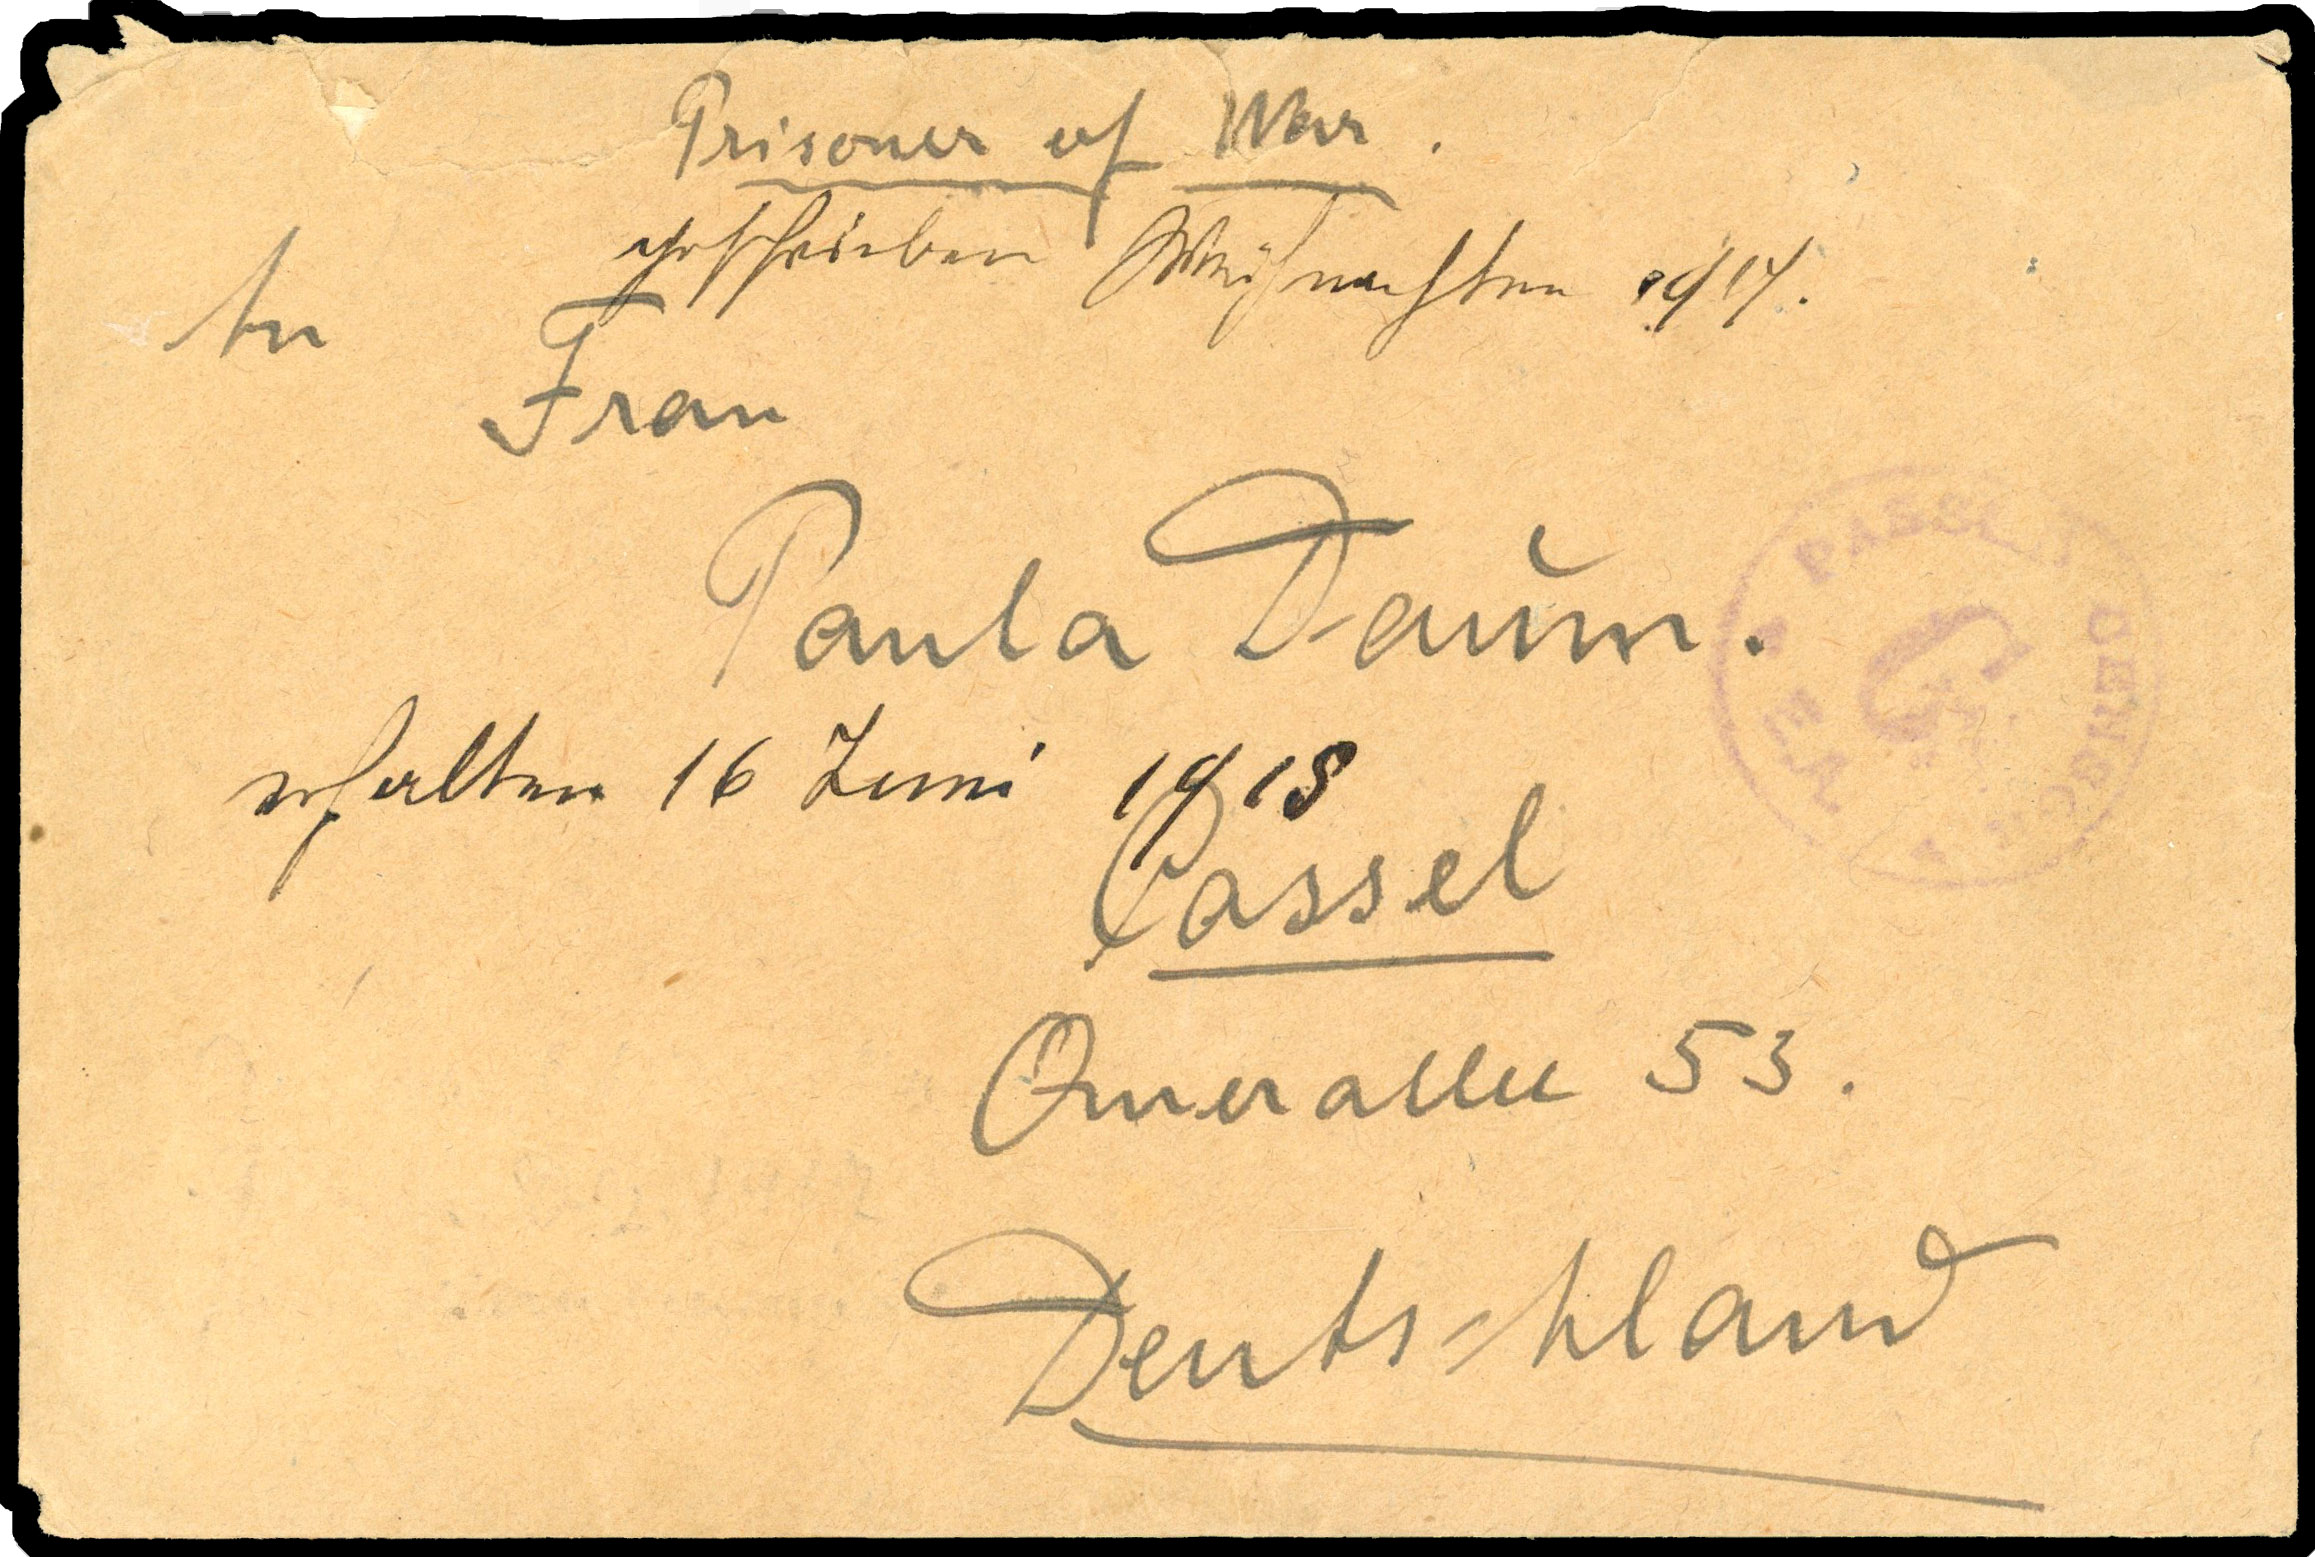 Prisoner of War.
geschrieben Weihnachten 1917.
An
Frau
Paula Daum.
PASSED
erhalten 16 Juni 1918
Cassel
Querallee 53.
Deutschland